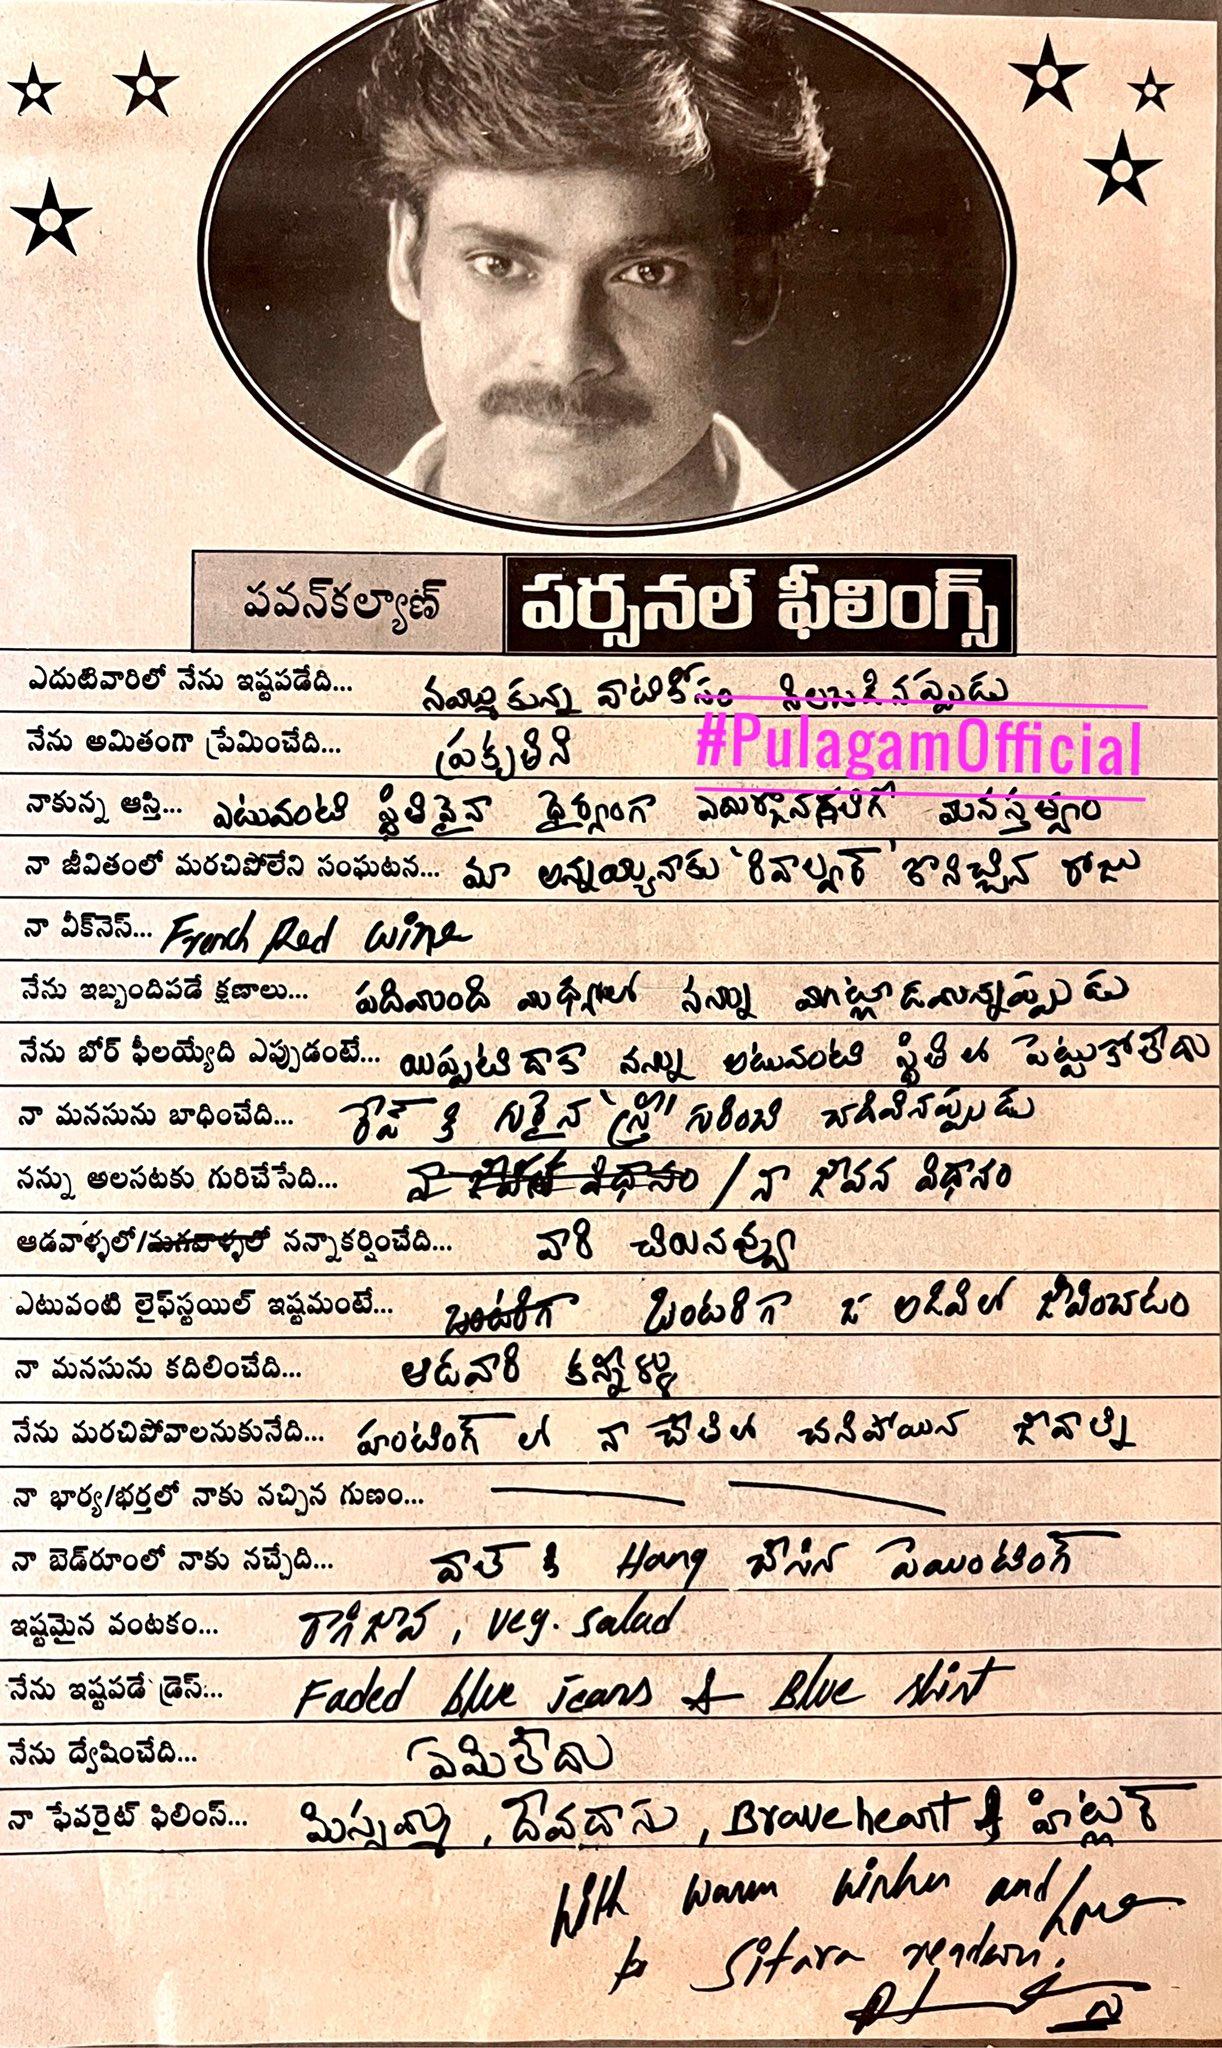 పవన్‌కల్యాణ్ పర్సనల్ ఫీలింగ్స్
ఎదుటివారిలో నేను ఇష్టపడేది... నమ్ముకున్న వాటికోసం నిలబడినప్పుడు
#PulagamOfficial
నేను అమితంగా ప్రేమించేది... ప్రకృతిని
నాకున్న ఆస్తి... ఎటువంటి స్థితినైనా ధైర్యంగా ఎదుర్కొనగలిగే మనస్తత్వం
నా జీవితంలో మరచిపోలేని సంఘటన... మా అన్నయ్య నాకు 'రివాల్వర్' కొనిచ్చిన రోజు
నా వీక్‌నెస్... French Red wine
నేను ఇబ్బందిపడే క్షణాలు... పదిమంది మధ్యలో నన్ను మాట్లాడమన్నప్పుడు
నేను బోర్ ఫీలయ్యేది ఎప్పుడంటే... యిప్పటిదాకా నన్ను అటువంటి స్థితిలో పెట్టుకోలేదు
నా మనసును బాధించేది... రేప్ కి గురైన 'స్త్రీ' గురించి చదివినప్పుడు
నన్ను అలసటకు గురిచేసేది... నా జీవన విధానం / నా జీవన విధానం
ఆడవాళ్ళలో/మగవాళ్ళలో నన్నాకర్షించేది... వారి చిరునవ్వు
ఎటువంటి లైఫ్‌స్టయిల్ ఇష్టమంటే... ఒంటరిగా ఒంటరిగా ఓ అడివిలో జీవించడం
నా మనసును కదిలించేది... ఆడవారి కన్నీళ్ళు
నేను మరచిపోవాలనుకునేది... హంటింగ్ లో నా చేతిలో చనిపోయిన జీవాల్ని
నా భార్య/భర్తలో నాకు నచ్చిన గుణం...
నా బెడ్‌రూంలో నాకు నచ్చేది... వాల్ కి Hang చేసిన పెయింటింగ్
ఇష్టమైన వంటకం... రాగిజావ, veg. salad
నేను ఇష్టపడే డ్రెస్... Faded blue jeans & Blue shirt
నేను ద్వేషించేది... ఏమిలేదు
నా ఫేవరైట్ ఫిలింస్... మిస్సమ్మ, దేవదాసు, Braveheart & హిట్లర్
With warm wishes and love
to Sitara readers.